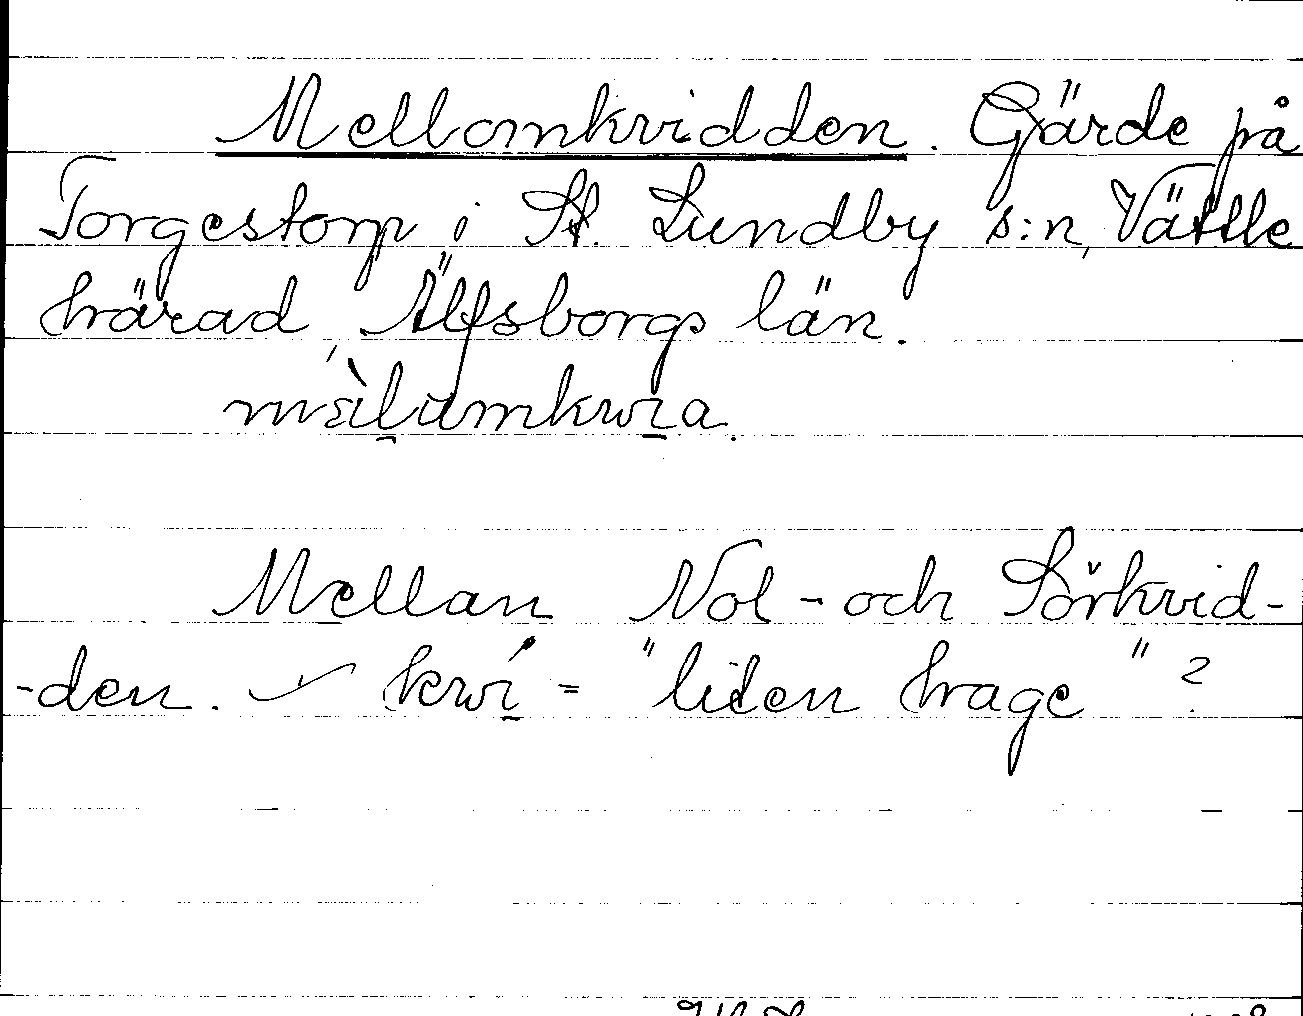 Mellomkvidden. Gärde på
Torgestorp i St. Lundby s:n, Vättle
härad, Älfsborgs län.
Mellan Nol- och Sörkvid-
-den. kwí = "liden hage"?